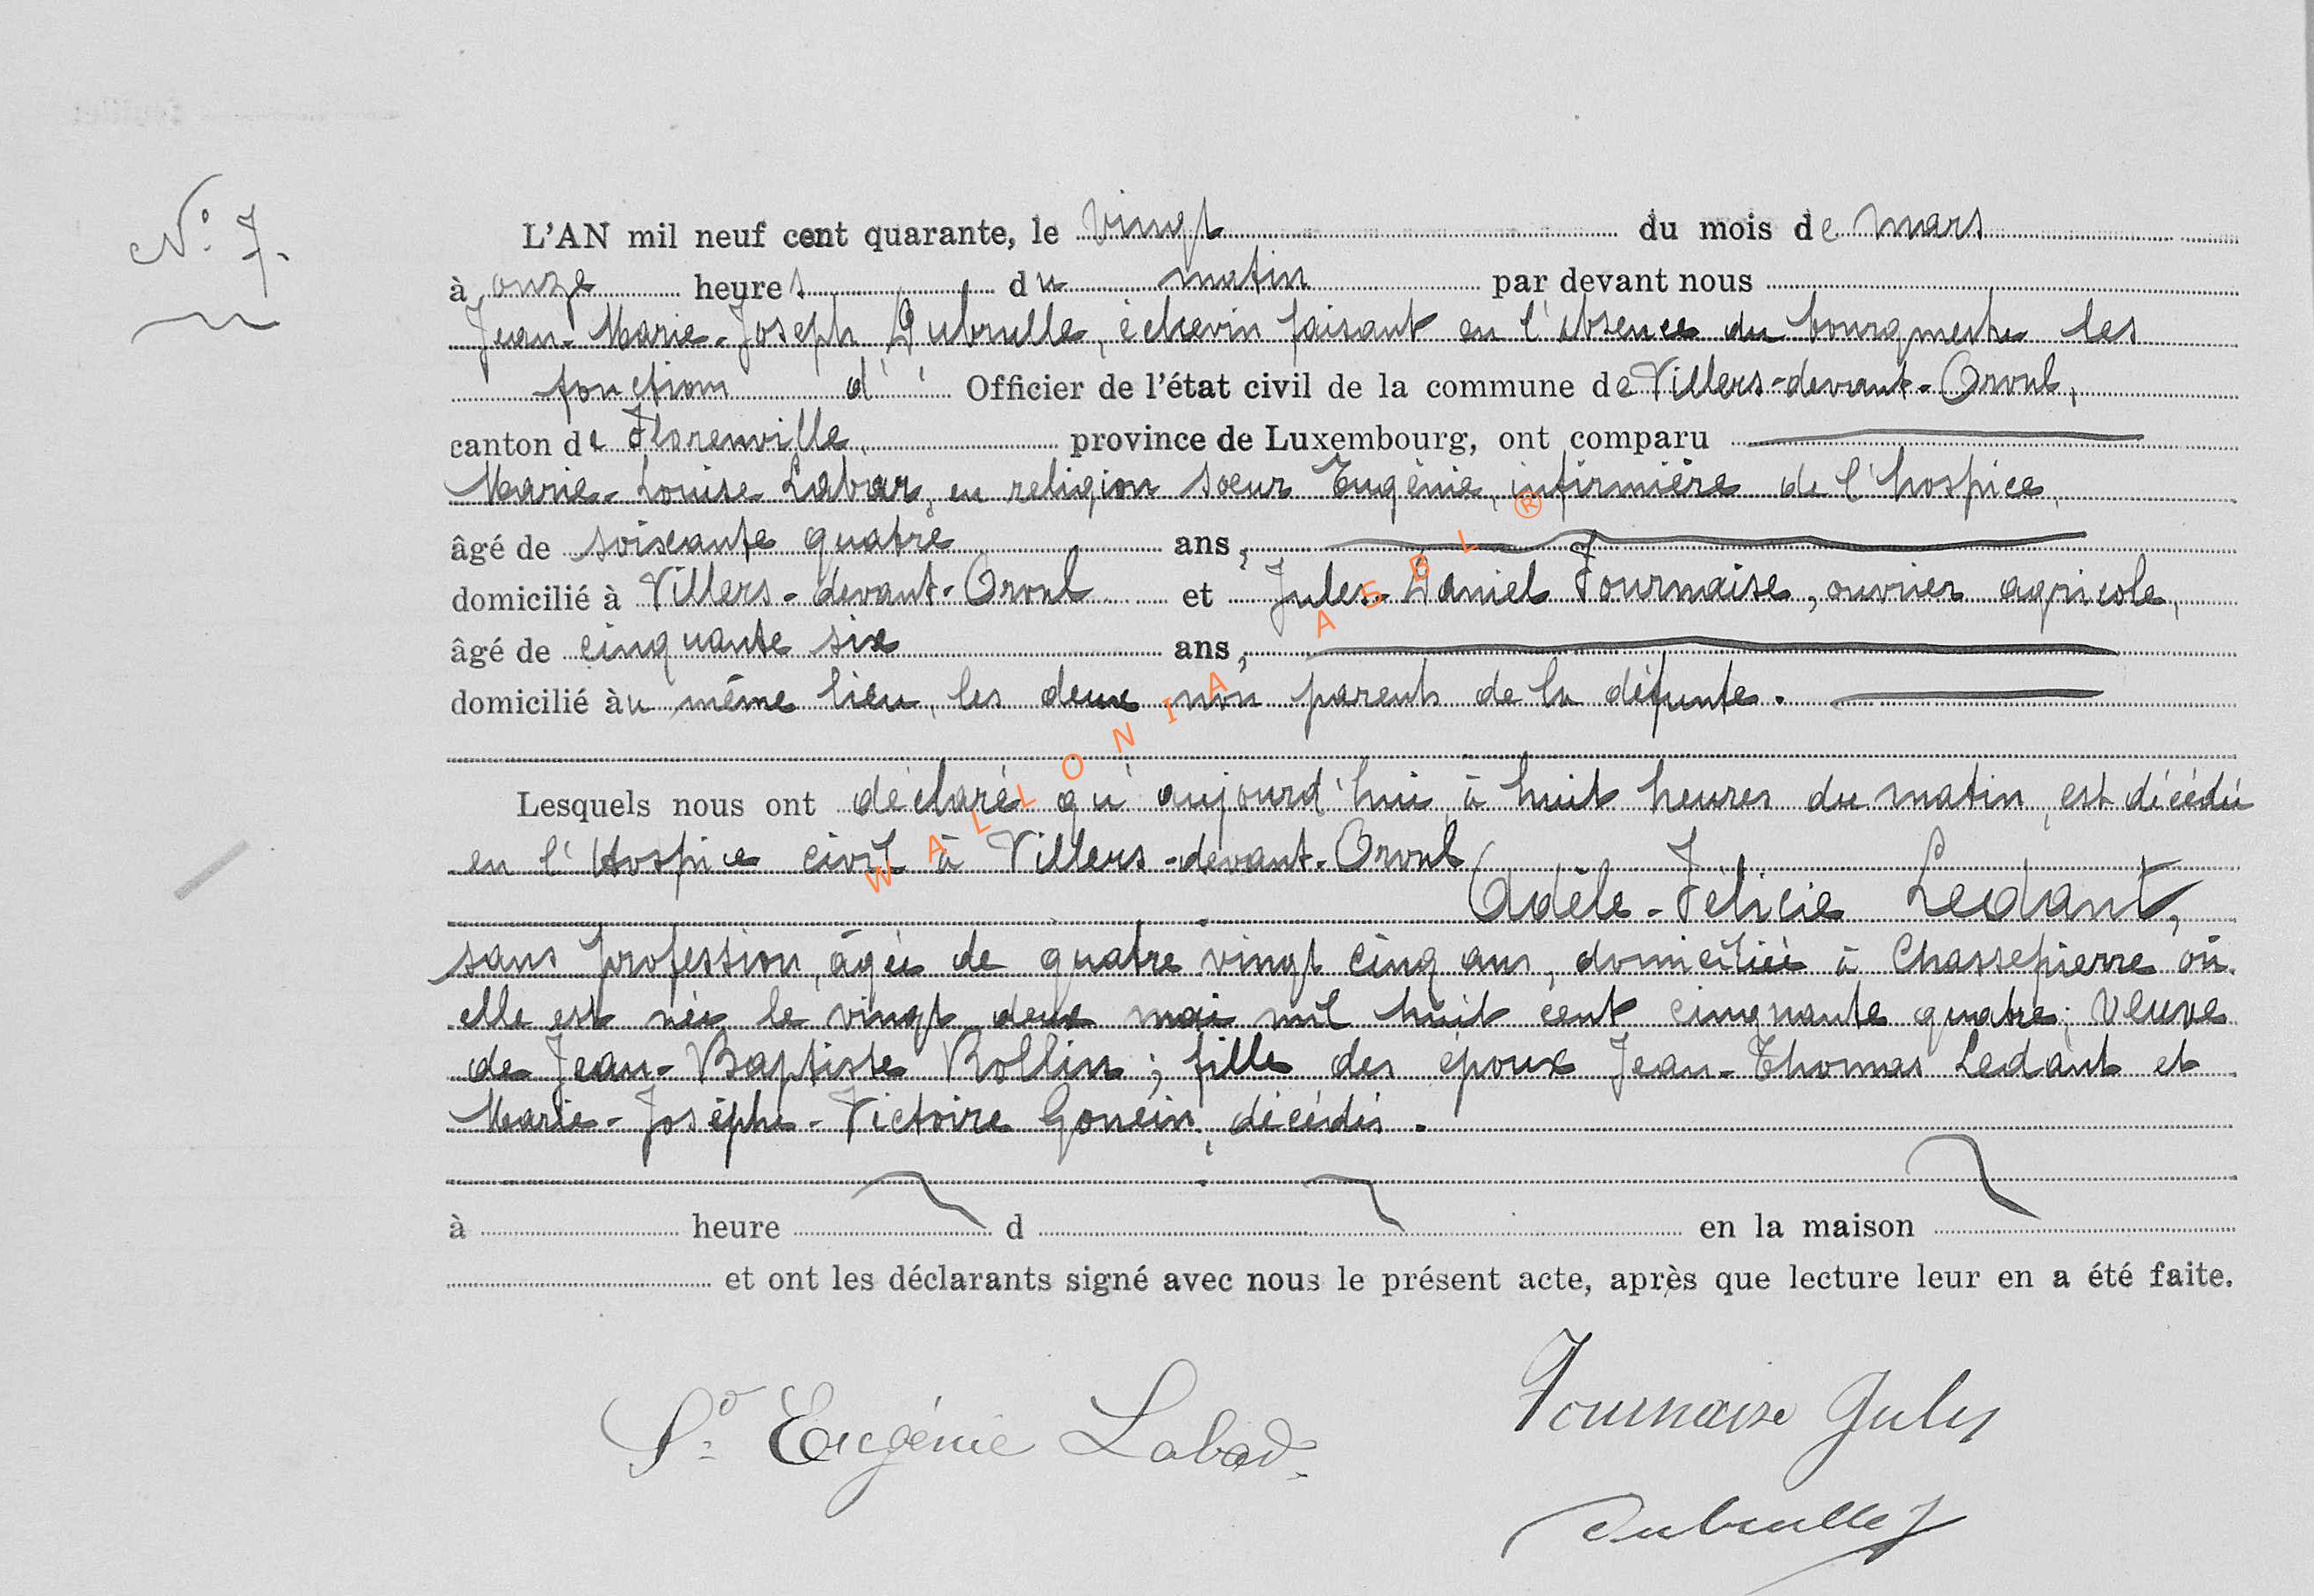 N° 7.
L'AN mil neuf cent quarante, le vingt du mois de mars
à onze heures du matin par devant nous
Jean-Marie-Joseph Dubrulle, échevin faisant en l'absence du bourgmestre les
fonctions d' Officier de l'état civil de la commune de Villers-devant-Orval,
canton de Florenville province de Luxembourg, ont comparu
Marie-Louise Labar, en religion sœur Eugénie, infirmière de l'hospice,
âgé de soixante quatre ans,
domicilié à Villers-devant-Orval et Jules Daniel Fournaise, ouvrier agricole,
âgé de cinquante six ans,
domicilié au même lieu, les deux non parents de la défunte.
Lesquels nous ont déclaré qu'aujourd'hui à huit heures du matin, est décédée
en l'Hospice civil à Villers-devant-Orval
Adèle-Félicie Ledant,
sans profession, âgée de quatre vingt cinq ans, domiciliée à Chassepierre où
elle est née le vingt deux mai mil huit cent cinquante quatre; veuve
de Jean-Baptiste Rollin; fille des époux Jean-Thomas Ledant et
Marie-Josèphe-Victoire Gonein, décédés.
à heure d en la maison
et ont les déclarants signé avec nous le présent acte, après que lecture leur en a été faite.
Sr Eugénie Labar.
Fournaise Jules
Dubrulle J
WALLONIA ASBL ®